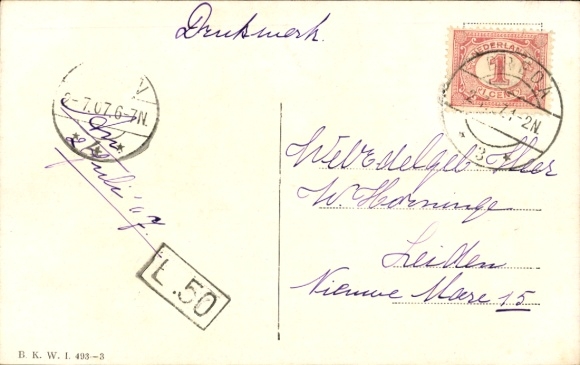 Drukwerk.
NEDERLAND
1
CENT
BREDA
1-2N.
3
2-7.07.6-7N.
2 Juli '07.
L.50
WelEdelgeb Heer
W. Horninge
Leiden
Nieuwe Mare 15
B. K. W. I. 493-3